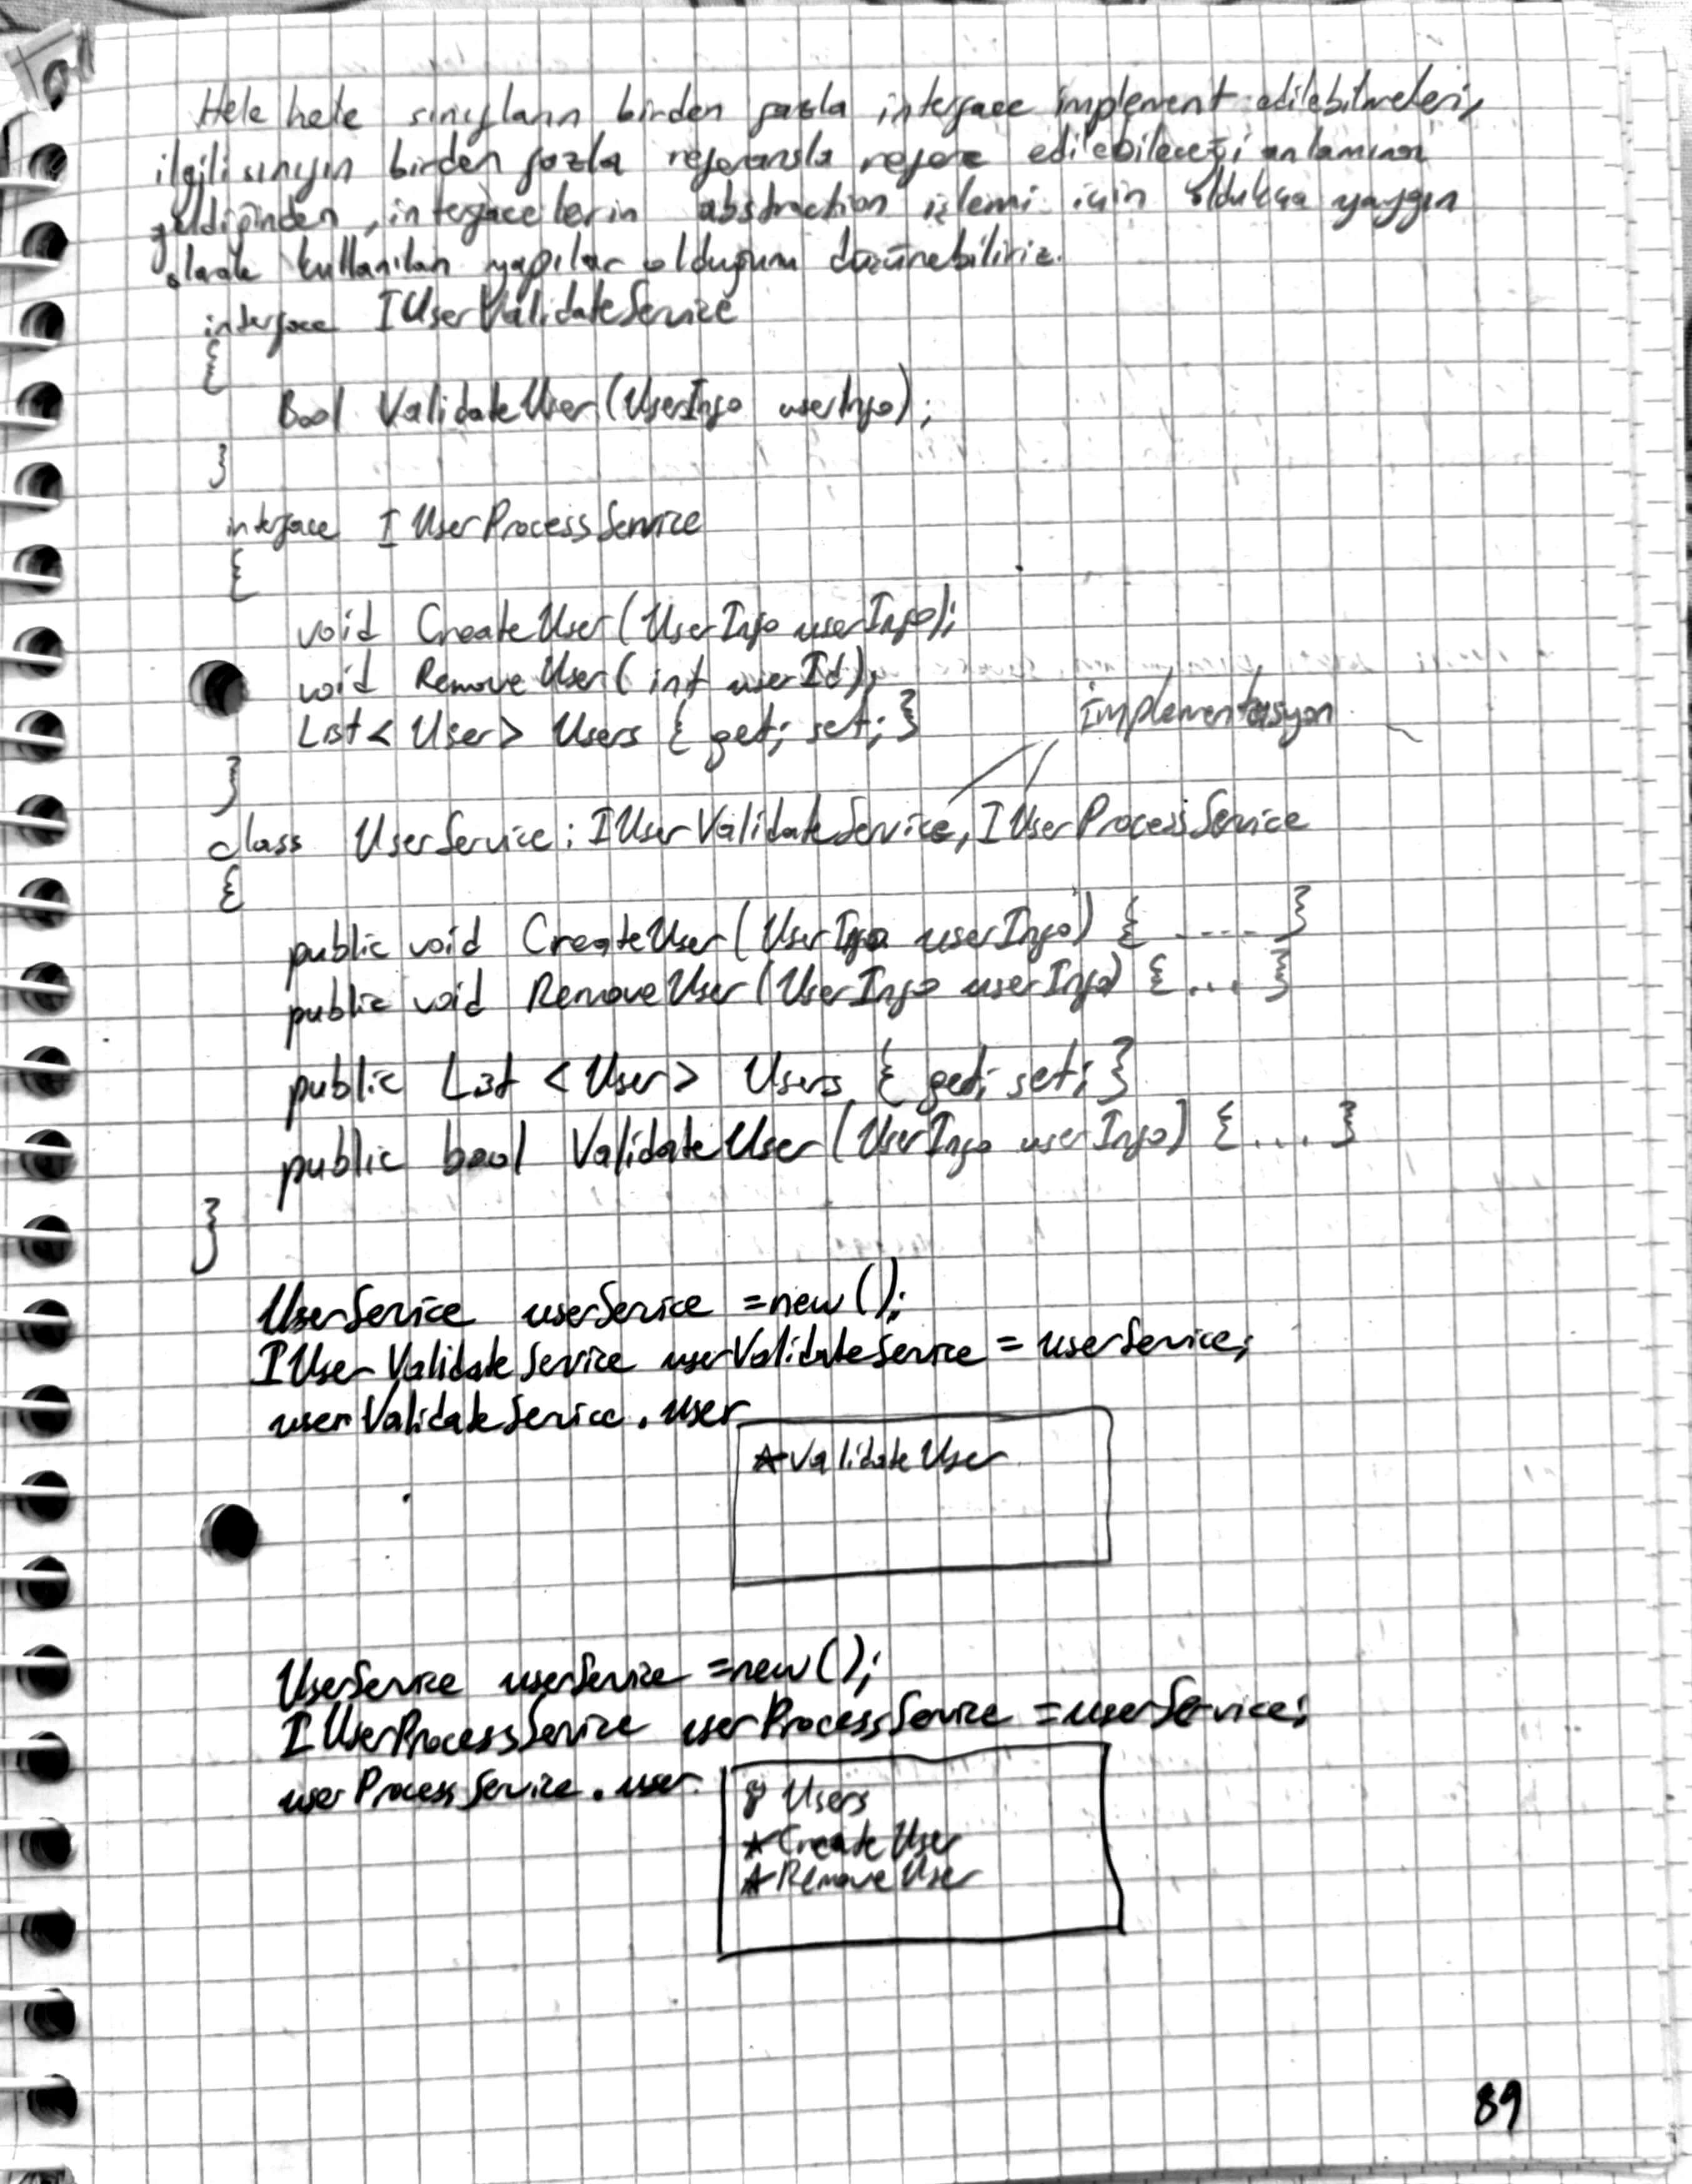 Hele hele sınıfların birden fazla interface implement edilebilmeleri,
ilgili sınıfın birden fazla referansla refere edilebileceği anlamına
geldiğinden, interfacelerin abstraction işlemi için oldukça yaygın
olarak kullanılan yapılar olduğunu düşünebiliriz.
interface IUserValidateService
{
Bool ValidateUser(UserInfo userInfo);
}
interface IUserProcessService
{
void CreateUser(UserInfo userInfo);
void RemoveUser(int userId);
List<User> Users { get; set; }
implementasyon
}
class UserService : IUserValidateService, IUserProcessService
{
public void CreateUser(UserInfo userInfo) { ..... }
public void RemoveUser(UserInfo userInfo) { ... }
public List <User> Users { get; set; }
public bool ValidateUser(UserInfo userInfo) { ... }
}
UserService userService =new();
IUserValidateService userValidateService = userService;
userValidateService.user
*ValidateUser
UserService userService =new();
IUserProcessService userProcessService =userService;
userProcessService.user
Users
*CreateUser
*RemoveUser
89